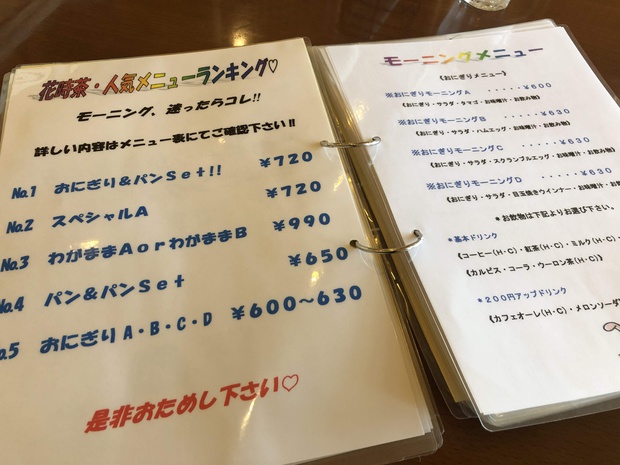 花時茶・人気メニューランキング♡
モーニング、迷ったらコレ!!
詳しい内容はメニュー表にてご確認下さい!!
No.1 おにぎり&パンSet!! ¥720
No.2 スペシャルA ¥720
No.3 わがままAorわがままB ¥990
No.4 パン&パンSet ¥650
No.5 おにぎりA・B・C・D ¥600〜630
是非おためし下さい♡
モーニングメニュー
《おにぎりメニュー》
※おにぎりモーニングA ・・・・・¥600
《おにぎり・サラダ・タマゴ・お味噌汁・お飲み物》
※おにぎりモーニングB ・・・・・¥630
《おにぎり・サラダ・ハムエッグ・お味噌汁・お飲み物》
※おにぎりモーニングC ・・・・・¥630
《おにぎり・サラダ・スクランブルエッグ・お味噌汁・お飲み物》
※おにぎりモーニングD ・・・・・¥630
《おにぎり・サラダ・目玉焼きウインナー・お味噌汁・お飲み物》
*お飲物は下記よりお選び下さい。
*基本ドリンク
《コーヒー(H・C)・紅茶(H・C)・ミルク(H・C)・
カルピス・コーラ・ウーロン茶(H・C)》
*200円アップドリンク
《カフェオーレ(H・C)・メロンソーダ